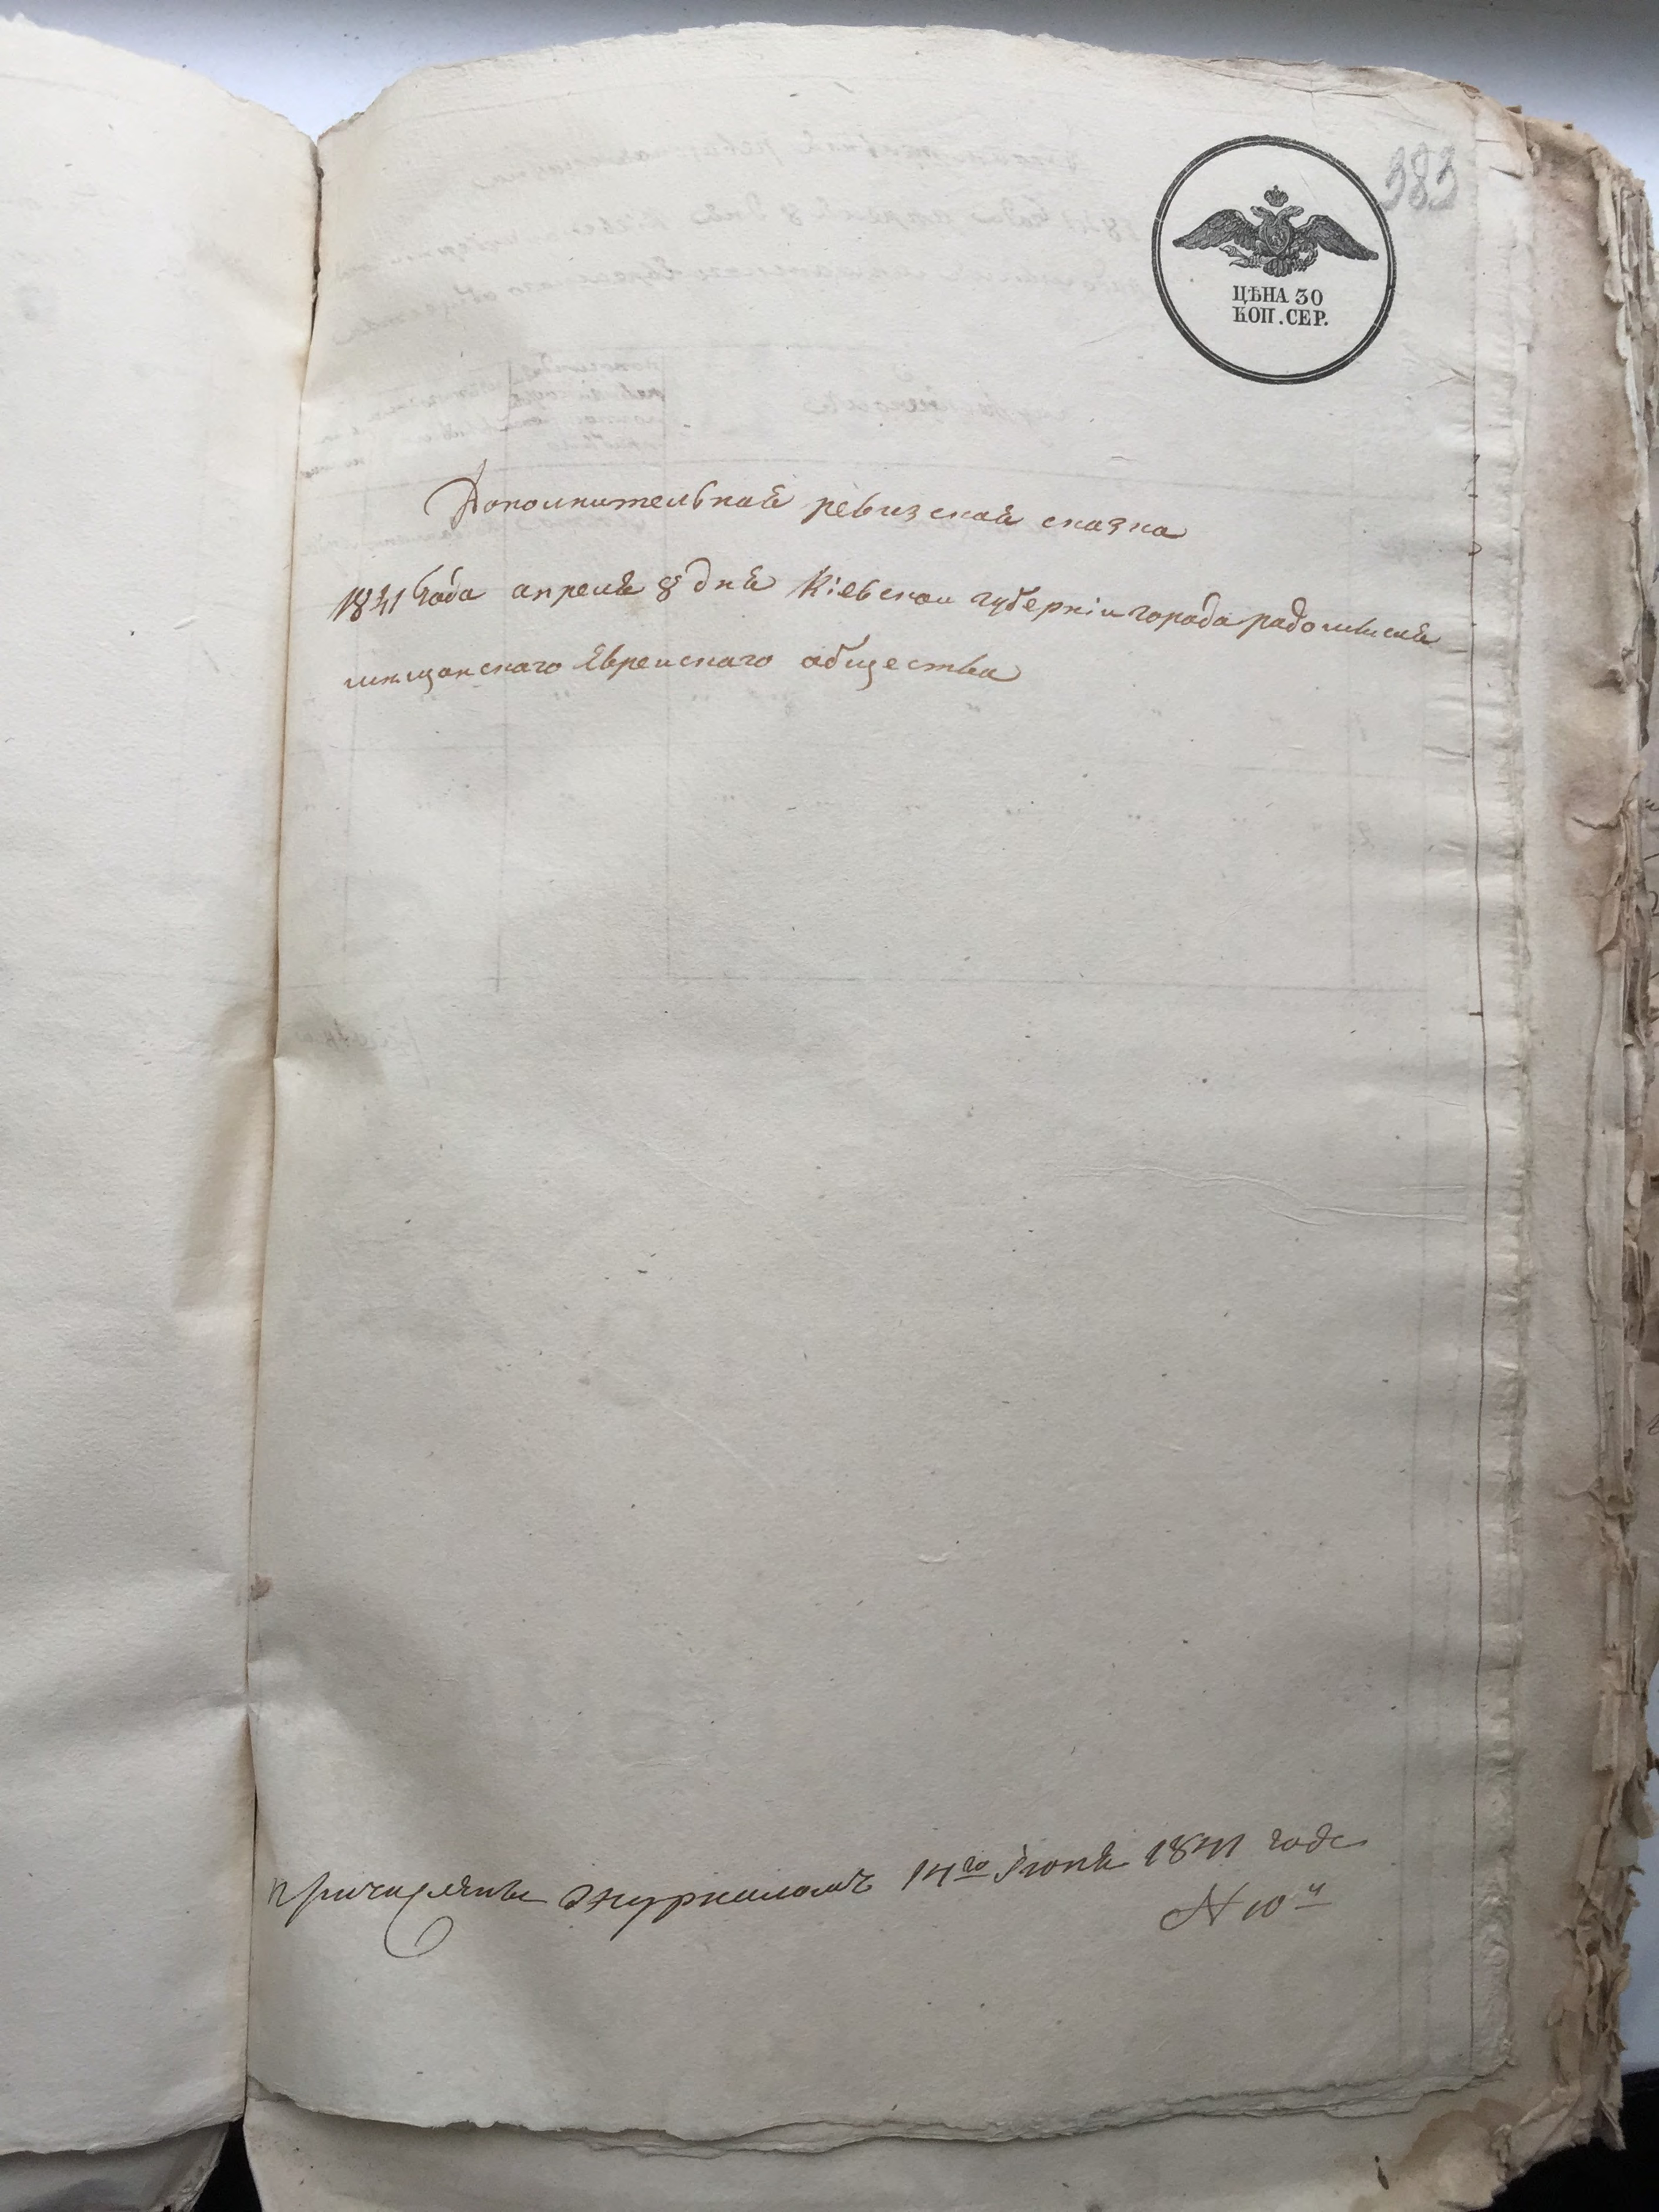 383
ЦѢНА 30
КОП. СЕР.
Дополнительная ревизская сказка
1841 Года апреля 8 дня Кіевскои губерніи города радомысля
мещанскаго Еврейскаго общества
14го Іюня 1841 года
N 10й